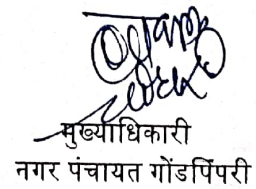 मुख्याधिकारी
नगर पंचायत गोंडपिंपरी